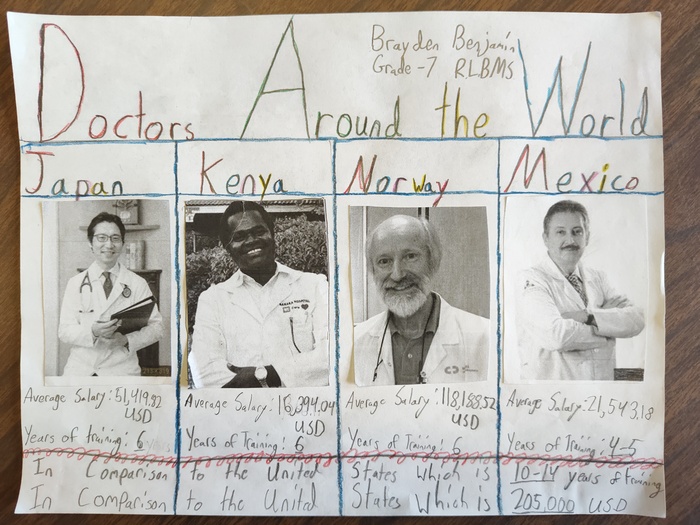 Brayden Benjamin
Grade -7 RLBMS
Doctors Around the World
Japan Kenya Norway Mexico
Average Salary: 51,419.92 USD
Years of training: 6
Average Salary: 16,394.04 USD
Years of Training: 6
Average Salary: 118,188.52 USD
Years of Training: 6
Average Salary: 21,543.18
Years of Training: 4-5
In Comparison to the United States which is 10-14 years of training
In Comparison to the Unital States Which is 205.000 USD